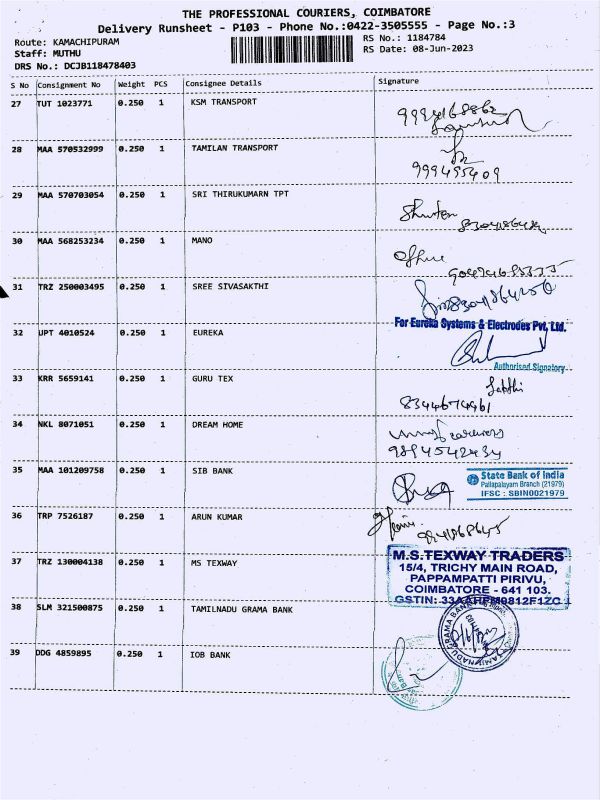 THE PROFESSIONAL COURIERS, COIMBATORE
Delivery Runsheet - P103 - Phone No.:0422-3505555 - Page No.:3
Route: KAMACHIPURAM RS No.: 1184784
Staff: MUTHU RS Date: 08-Jun-2023
DRS No.: DCJB118478403
S No Consignment No Weight PCS Consignee Details Signature
27 TUT 1023771 0.250 1 KSM TRANSPORT
28 MAA 570532999 0.250 1 TAMILAN TRANSPORT
999495409
29 MAA 570703054 0.250 1 SRI THIRUKUMARN TPT
30 MAA 568253234 0.250 1 MANO
31 TRZ 250003495 0.250 1 SREE SIVASAKTHI
For Eureka Systems & Electrodes Pvt. Ltd.
32 UPT 4010524 0.250 1 EUREKA
Authorised Signatory
33 KRR 5659141 0.250 1 GURU TEX
8344674461
34 NKL 8071051 0.250 1 DREAM HOME
9894542434
35 MAA 101209758 0.250 1 SIB BANK
State Bank of India
Pallapalayam Branch (21979)
IFSC : SBIN0021979
36 TRP 7526187 0.250 1 ARUN KUMAR
37 TRZ 130004138 0.250 1 MS TEXWAY
M.S.TEXWAY TRADERS
15/4, TRICHY MAIN ROAD,
PAPPAMPATTI PIRIVU,
COIMBATORE - 641 103.
GSTIN: 33AAHPM0812F1ZC
38 SLM 321500875 0.250 1 TAMILNADU GRAMA BANK
39 DDG 4859895 0.250 1 IOB BANK